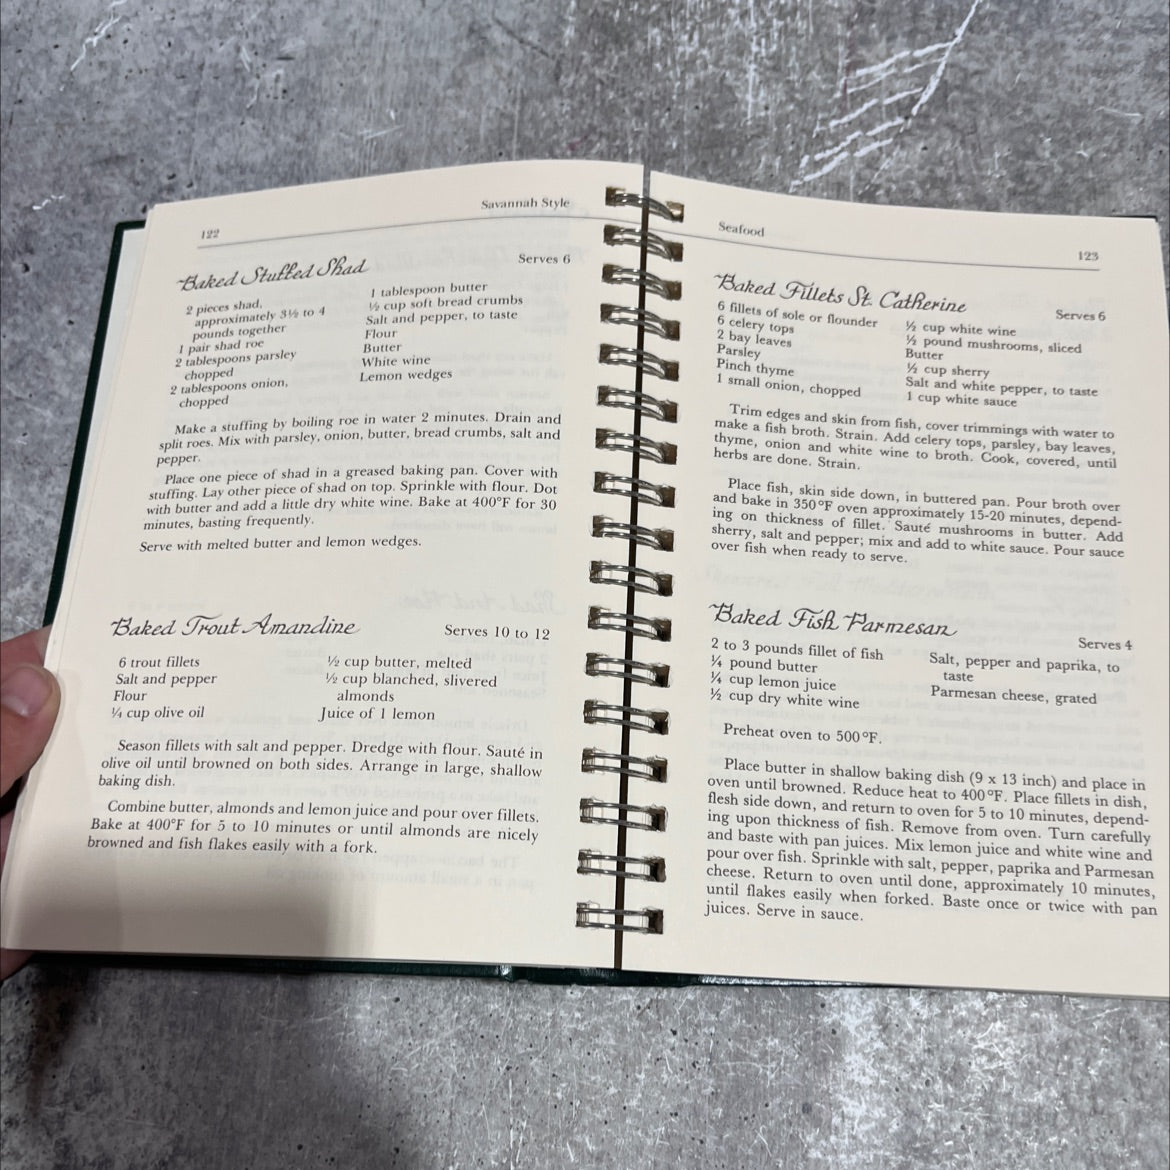 122
Savannah Style
Baked Stuffed Shad
Serves 6
2 pieces shad,
approximately 3½ to 4
pounds together
1 pair shad roe
2 tablespoons parsley
chopped
2 tablespoons onion,
chopped
1 tablespoon butter
½ cup soft bread crumbs
Salt and pepper, to taste
Flour
Butter
White wine
Lemon wedges
Make a stuffing by boiling roe in water 2 minutes. Drain and
split roes. Mix with parsley, onion, butter, bread crumbs, salt and
pepper.
Place one piece of shad in a greased baking pan. Cover with
stuffing. Lay other piece of shad on top. Sprinkle with flour. Dot
with butter and add a little dry white wine. Bake at 400°F for 30
minutes, basting frequently.
Serve with melted butter and lemon wedges.
Baked Trout Amandine
Serves 10 to 12
6 trout fillets
Salt and pepper
Flour
¼ cup olive oil
½ cup butter, melted
½ cup blanched, slivered
almonds
Juice of 1 lemon
Season fillets with salt and pepper. Dredge with flour. Sauté in
olive oil until browned on both sides. Arrange in large, shallow
baking dish.
Combine butter, almonds and lemon juice and pour over fillets.
Bake at 400°F for 5 to 10 minutes or until almonds are nicely
browned and fish flakes easily with a fork.
Seafood
123
Baked Fillets St. Catherine
Serves 6
6 fillets of sole or flounder
6 celery tops
2 bay leaves
Parsley
Pinch thyme
1 small onion, chopped
½ cup white wine
½ pound mushrooms, sliced
Butter
½ cup sherry
Salt and white pepper, to taste
1 cup white sauce
Trim edges and skin from fish, cover trimmings with water to
make a fish broth. Strain. Add celery tops, parsley, bay leaves,
thyme, onion and white wine to broth. Cook, covered, until
herbs are done. Strain.
Place fish, skin side down, in buttered pan. Pour broth over
and bake in 350°F oven approximately 15-20 minutes, depend-
ing on thickness of fillet. Sauté mushrooms in butter. Add
sherry, salt and pepper; mix and add to white sauce. Pour sauce
over fish when ready to serve.
Baked Fish Parmesan
Serves 4
2 to 3 pounds fillet of fish
¼ pound butter
¼ cup lemon juice
½ cup dry white wine
Salt, pepper and paprika, to
taste
Parmesan cheese, grated
Preheat oven to 500°F.
Place butter in shallow baking dish (9 x 13 inch) and place in
oven until browned. Reduce heat to 400°F. Place fillets in dish,
flesh side down, and return to oven for 5 to 10 minutes, depend-
ing upon thickness of fish. Remove from oven. Turn carefully
and baste with pan juices. Mix lemon juice and white wine and
pour over fish. Sprinkle with salt, pepper, paprika and Parmesan
cheese. Return to oven until done, approximately 10 minutes,
until flakes easily when forked. Baste once or twice with pan
juices. Serve in sauce.